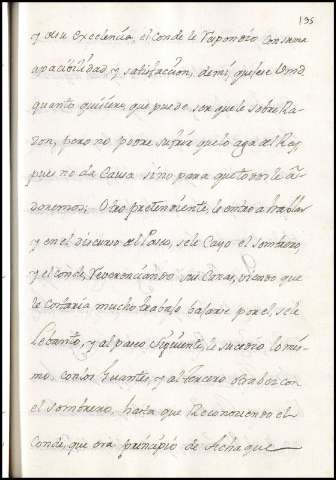 135
y de su excelencia, el conde le Respondio con suma
apacibilidad, y satisfacion, de mi, quejese Vmd
quanto quisiere, que puede ser que le sobre Ra-
zon, pero no podre sufrir que lo aga del Rey
pues no da Causa sino para que todos le a-
doremos; Otro pretendiente, le entro a hablar
y en el discurso del Paseo, se le Cayo el sombrero,
y el conde, Reverenciando sus Canas, viendo que
le costaria mucho trabajo bajarse por el se le
Lebanto, y al paseo siguiente, le sucedio lo mis-
mo, con los Guantes, y al tercero otra bez con
el sombrero, hasta que Reconociendo el
Conde, que era principio de Achaque